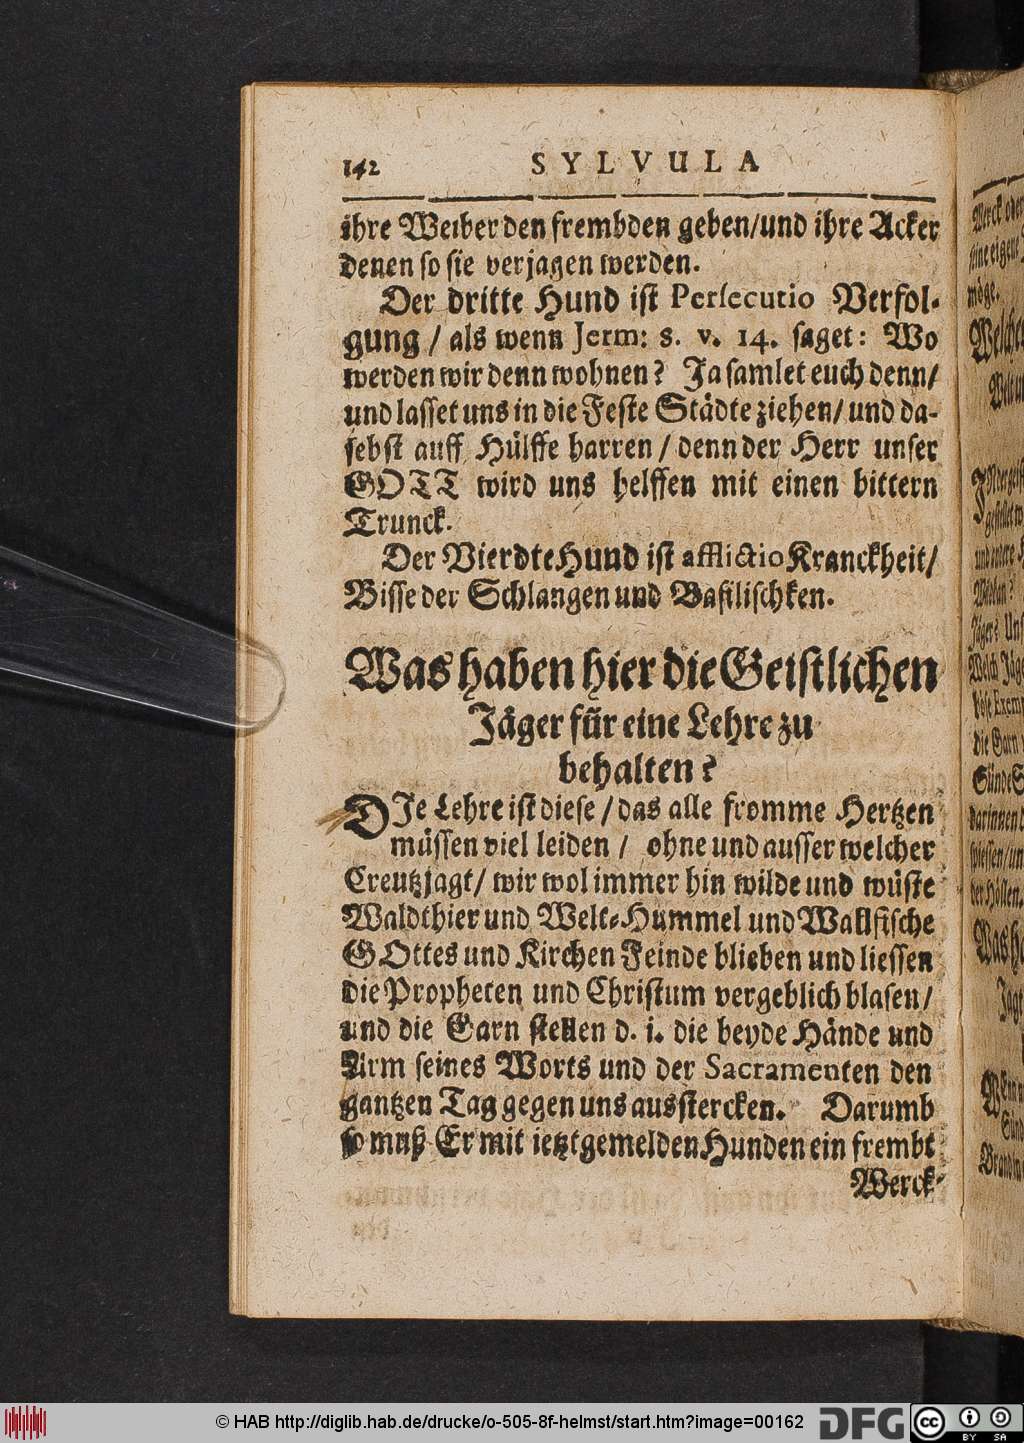 142 SYLVULA
ihre Weiber den frembden geben/und ihre Acker
denen so sie verjagen werden.
Der dritte Hund ist Persecutio Verfol-
gung / als wenn Jerm: 8. v. 14. saget: Wo
werden wir denn wohnen? Ja samlet euch denn/
und lasset uns in die Feste Städte ziehen/ und da-
sebst auff Hülffe harren / denn der Herr unser
GOTT wird uns helffen mit einen bittern
Trunck.
Der Vierdte Hund ist afflictio Kranckheit/
Bisse der Schlangen und Basilischken.
Was haben hier die Geistlichen
Jäger für eine Lehre zu
behalten?
DIe Lehre ist diese / das alle fromme Hertzen
müssen viel leiden / ohne und ausser welcher
Creutzjagt/ wir wol immer hin wilde und wüste
Waldthier und Welt-Hummel und Wallfische
GOttes und Kirchen Feinde blieben und liessen
die Propheten und Christum vergeblich blasen/
und die Garn stellen d. i. die beyde Hände und
Arm seines Worts und der Sacramenten den
gantzen Tag gegen uns ausstercken. Darumb
so muß Er mit ietztgemelden Hunden ein frembt
Werck
© HAB http://diglib.hab.de/drucke/o-505-8f-helmst/start.htm?image=00162
DFG
cc
BY SA